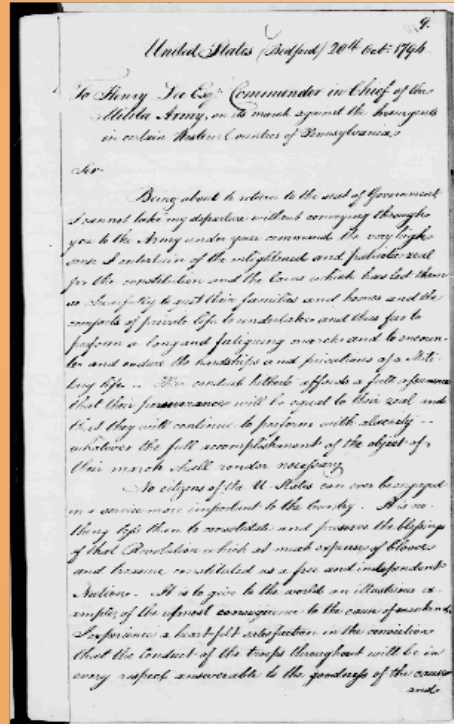 9.
United States (Bedford) 20th Octr. 1794
To Henry Lee Esqr. Commander in Chief of the
Militia Army, on its march against the Insurgents
in certain Western Counties of Pennsylvania,
Sir
Being about to return to the seat of Government
I cannot take my departure without conveying through
you to the Army under your command the very high
sense I entertain of the enlightened and patriotic zeal
for the constitution and the laws which has led them
so chearfully to quit their families and homes and the
comforts of private life to undertake and thus far to
perform a long and fatiguing march and to encoun-
ter and endure the hardships and privations of a Mili-
tary life. Their conduct hitherto affords a full assurance
that their perseverance will be equal to their zeal and
that they will continue to perform with alacrity --
whatever the full accomplishment of the object of
their march shall render necessary
No citizens of the U. States can ever be engaged
in a service more important to the Country. It is no-
thing less than to consolidate and preserve the blessings
of that Revolution which at much expense of blood
and treasure constituted us a free and independent
Nation. It is to give to the world an illustrious ex-
ample of the utmost consequence to the cause of mankind.
I experience a heartfelt satisfaction in the conviction
that the conduct of the troops throughout will be in
every respect answerable to the goodness of the cause
and